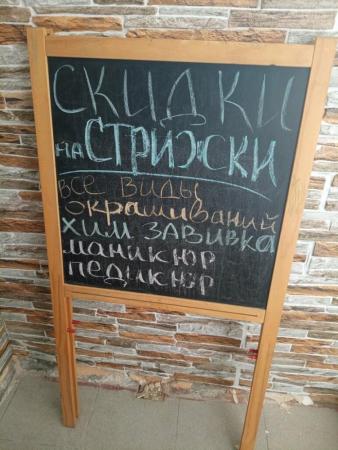 СКИДКИ
на СТРИЖКИ
все виды
окрашиваний
ХИМ ЗАВИВКА
маникюр
педикюр